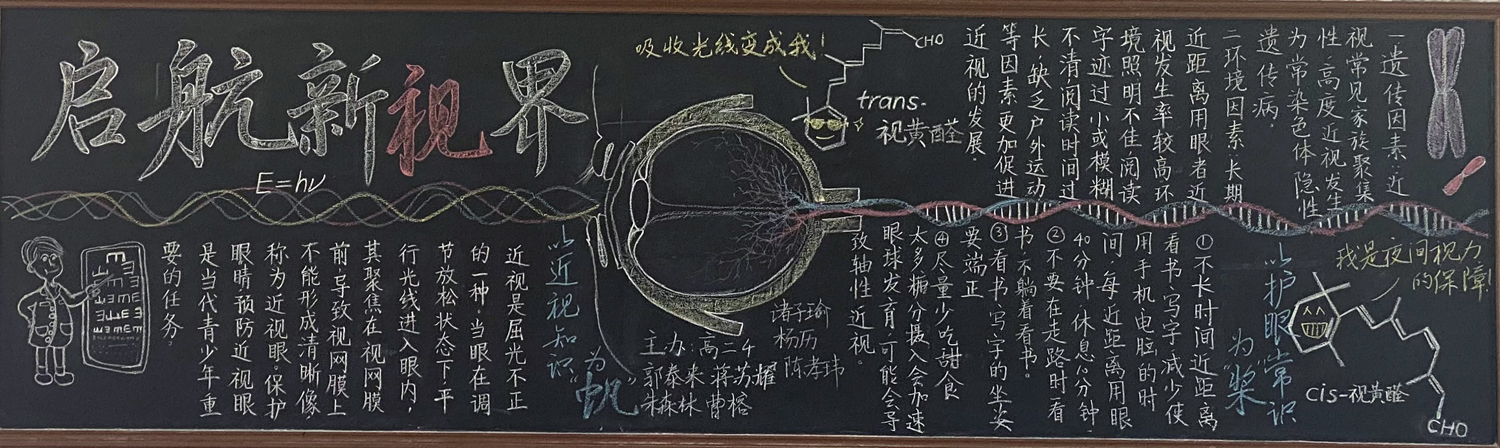 启航新视界
E=hν
吸收光线变成我!
CHO
trans-
视黄醛
一遗传因素:近
视常见家族聚集
性,高度近视发生
为常染色体隐性
遗传病。
二环境因素:长期
近距离用眼者近
视发生率较高,环
境照明不佳,阅读
字迹过小或模糊
不清,阅读时间过
长、缺乏户外运动
等因素更加促进
近视的发展。
以近视知识
为“帆”
近视是屈光不正
的一种,当眼在调
节放松状态下,平
行光线进入眼内,
其聚焦在视网膜
前,导致视网膜上
不能形成清晰像
称为近视眼。保护
眼睛预防近视眼
是当代青少年重
要的任务。
以护眼常识
为“桨”
①不长时间近距离
看书、写字,减少使
用手机电脑的时
间,每近距离用眼
40分钟,休息10分钟。
②不要在走路时看
书,不躺着看书。
③看书写字的坐姿
要端正
④尽量少吃甜食
太多糖分摄入会加速
眼球发育,可能会导
致轴性近视。
我是夜间视力
的保障!
cis-视黄醛
CHO
主办:高二4
郭泰来 蒋苏耀
朱森林 曹榕
杨历
陈孝玮